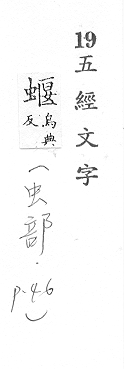 19五經文字
蝘
烏典
反
（虫部．
p.46）